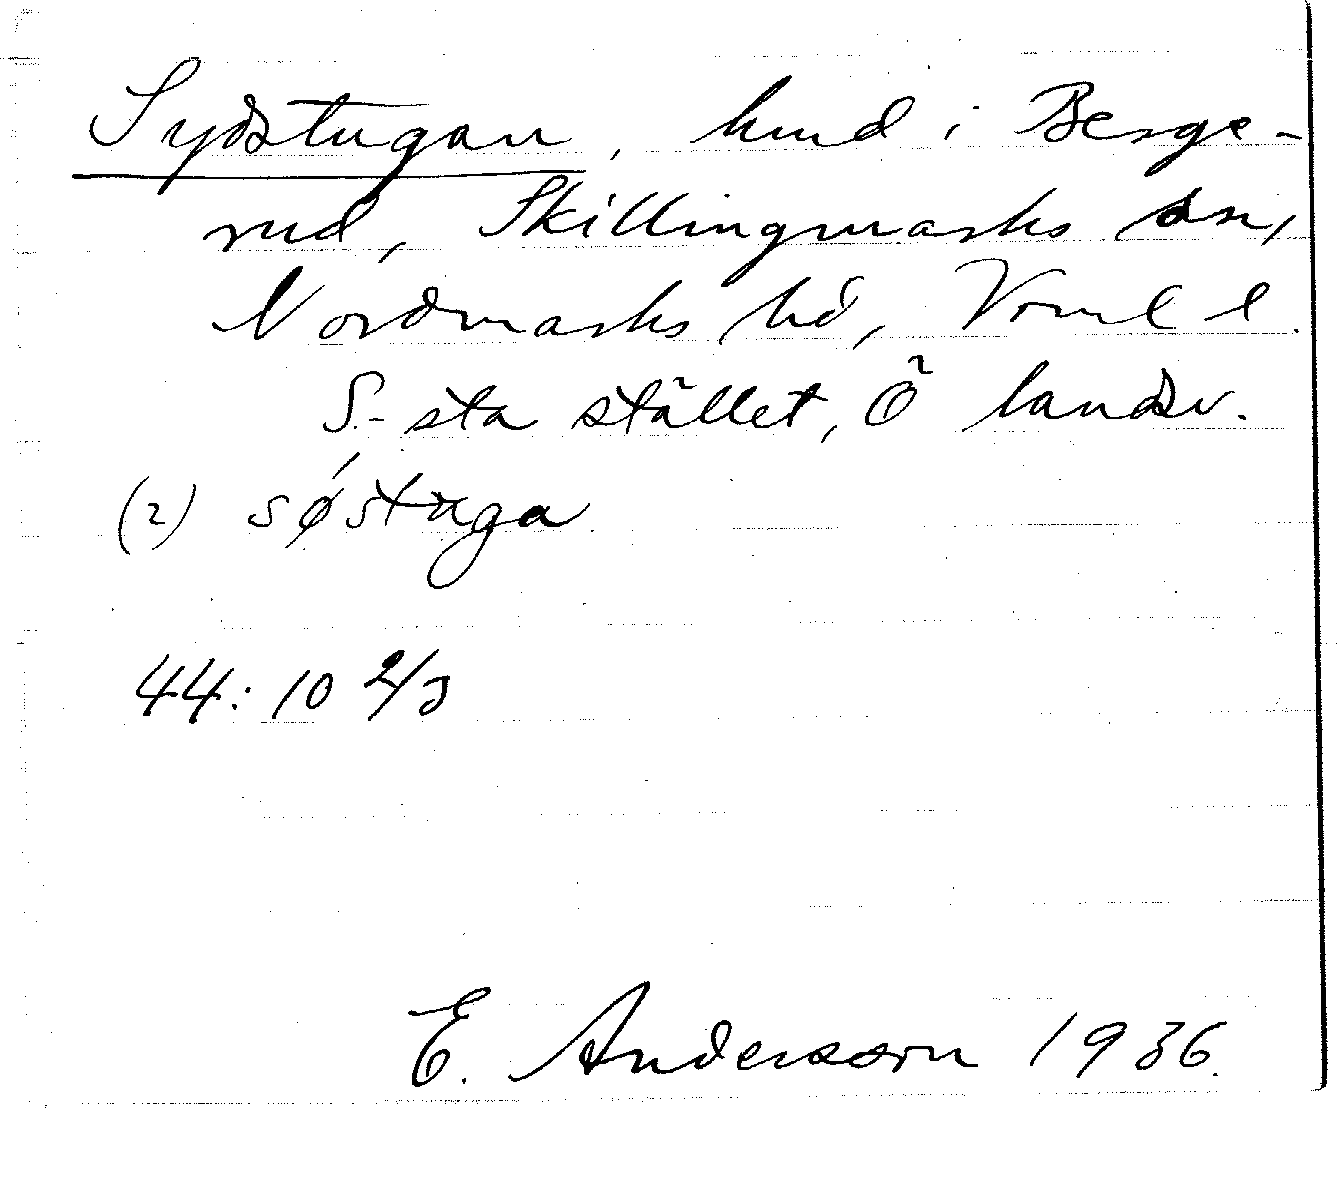 Sydstugan, hmd i Berge-
rud, Skillingmarks sn,
Nordmarks hd, Vrml l.
S.-sta stället, Ö landsv.
(2) sø´stuga
44:10 2/3
E. Andersson 1936.